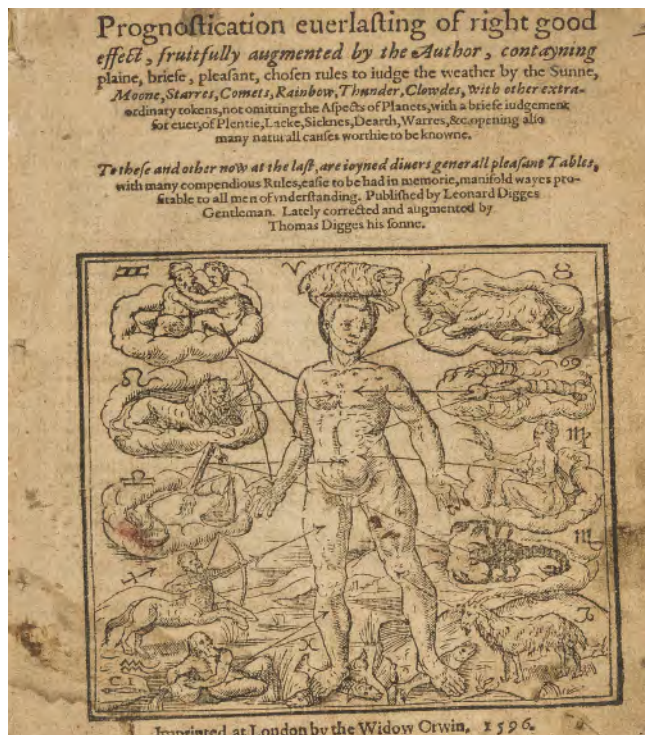 Prognoſtication euerlaſting of right good
effect, fruitfully augmented by the Author, contayning
plaine, briefe, pleaſant, choſen rules to iudge the weather by the Sunne,
Moone, Starres, Comets, Rainbow, Thunder, Clowdes, with other extra-
ordinary tokens, not omitting the Aſpects of Planets, with a briefe iudgement
for euer, of Plentie, Lacke, Sicknes, Dearth, Warres, &c. opening alſo
many naturall cauſes worthie to be knowne.
To theſe and other now at the laſt, are ioyned diuers generall pleaſant Tables,
with many compendious Rules, eaſie to be had in memorie, manifold wayes pro-
fitable to all men of vnderſtanding. Publiſhed by Leonard Digges
Gentleman. Lately corrected and augmented by
Thomas Digges his ſonne.
♊ ♈ ♉
♌ ♋
♎ ♍
♏
♐
♑
♒ ♓
C I
Imprinted at London by the Widow Orwin. 1596.